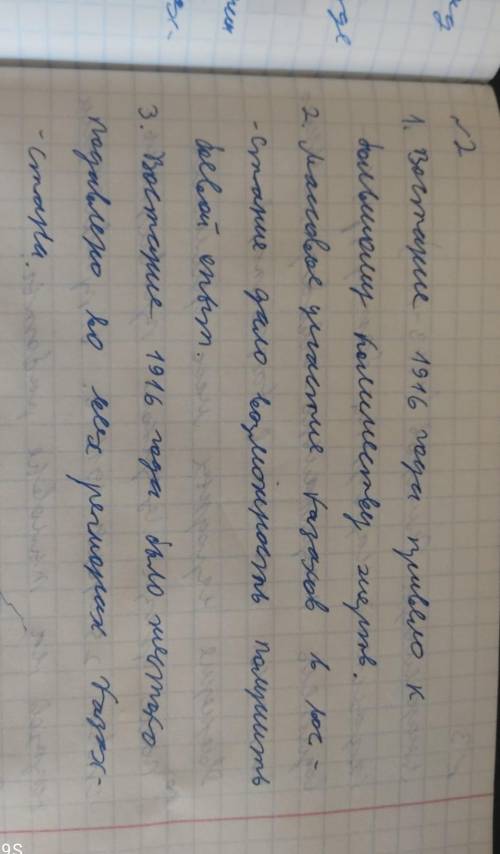 №2
1. Восстание 1916 года привело к
большому количеству жертв.
2. Массовые участие казахов в вос-
-стание дало возможность получить
боевой опыт.
3. Восстание 1916 года было жестоко
подавлено во всех регионах Казах-
-стана.
где
9S